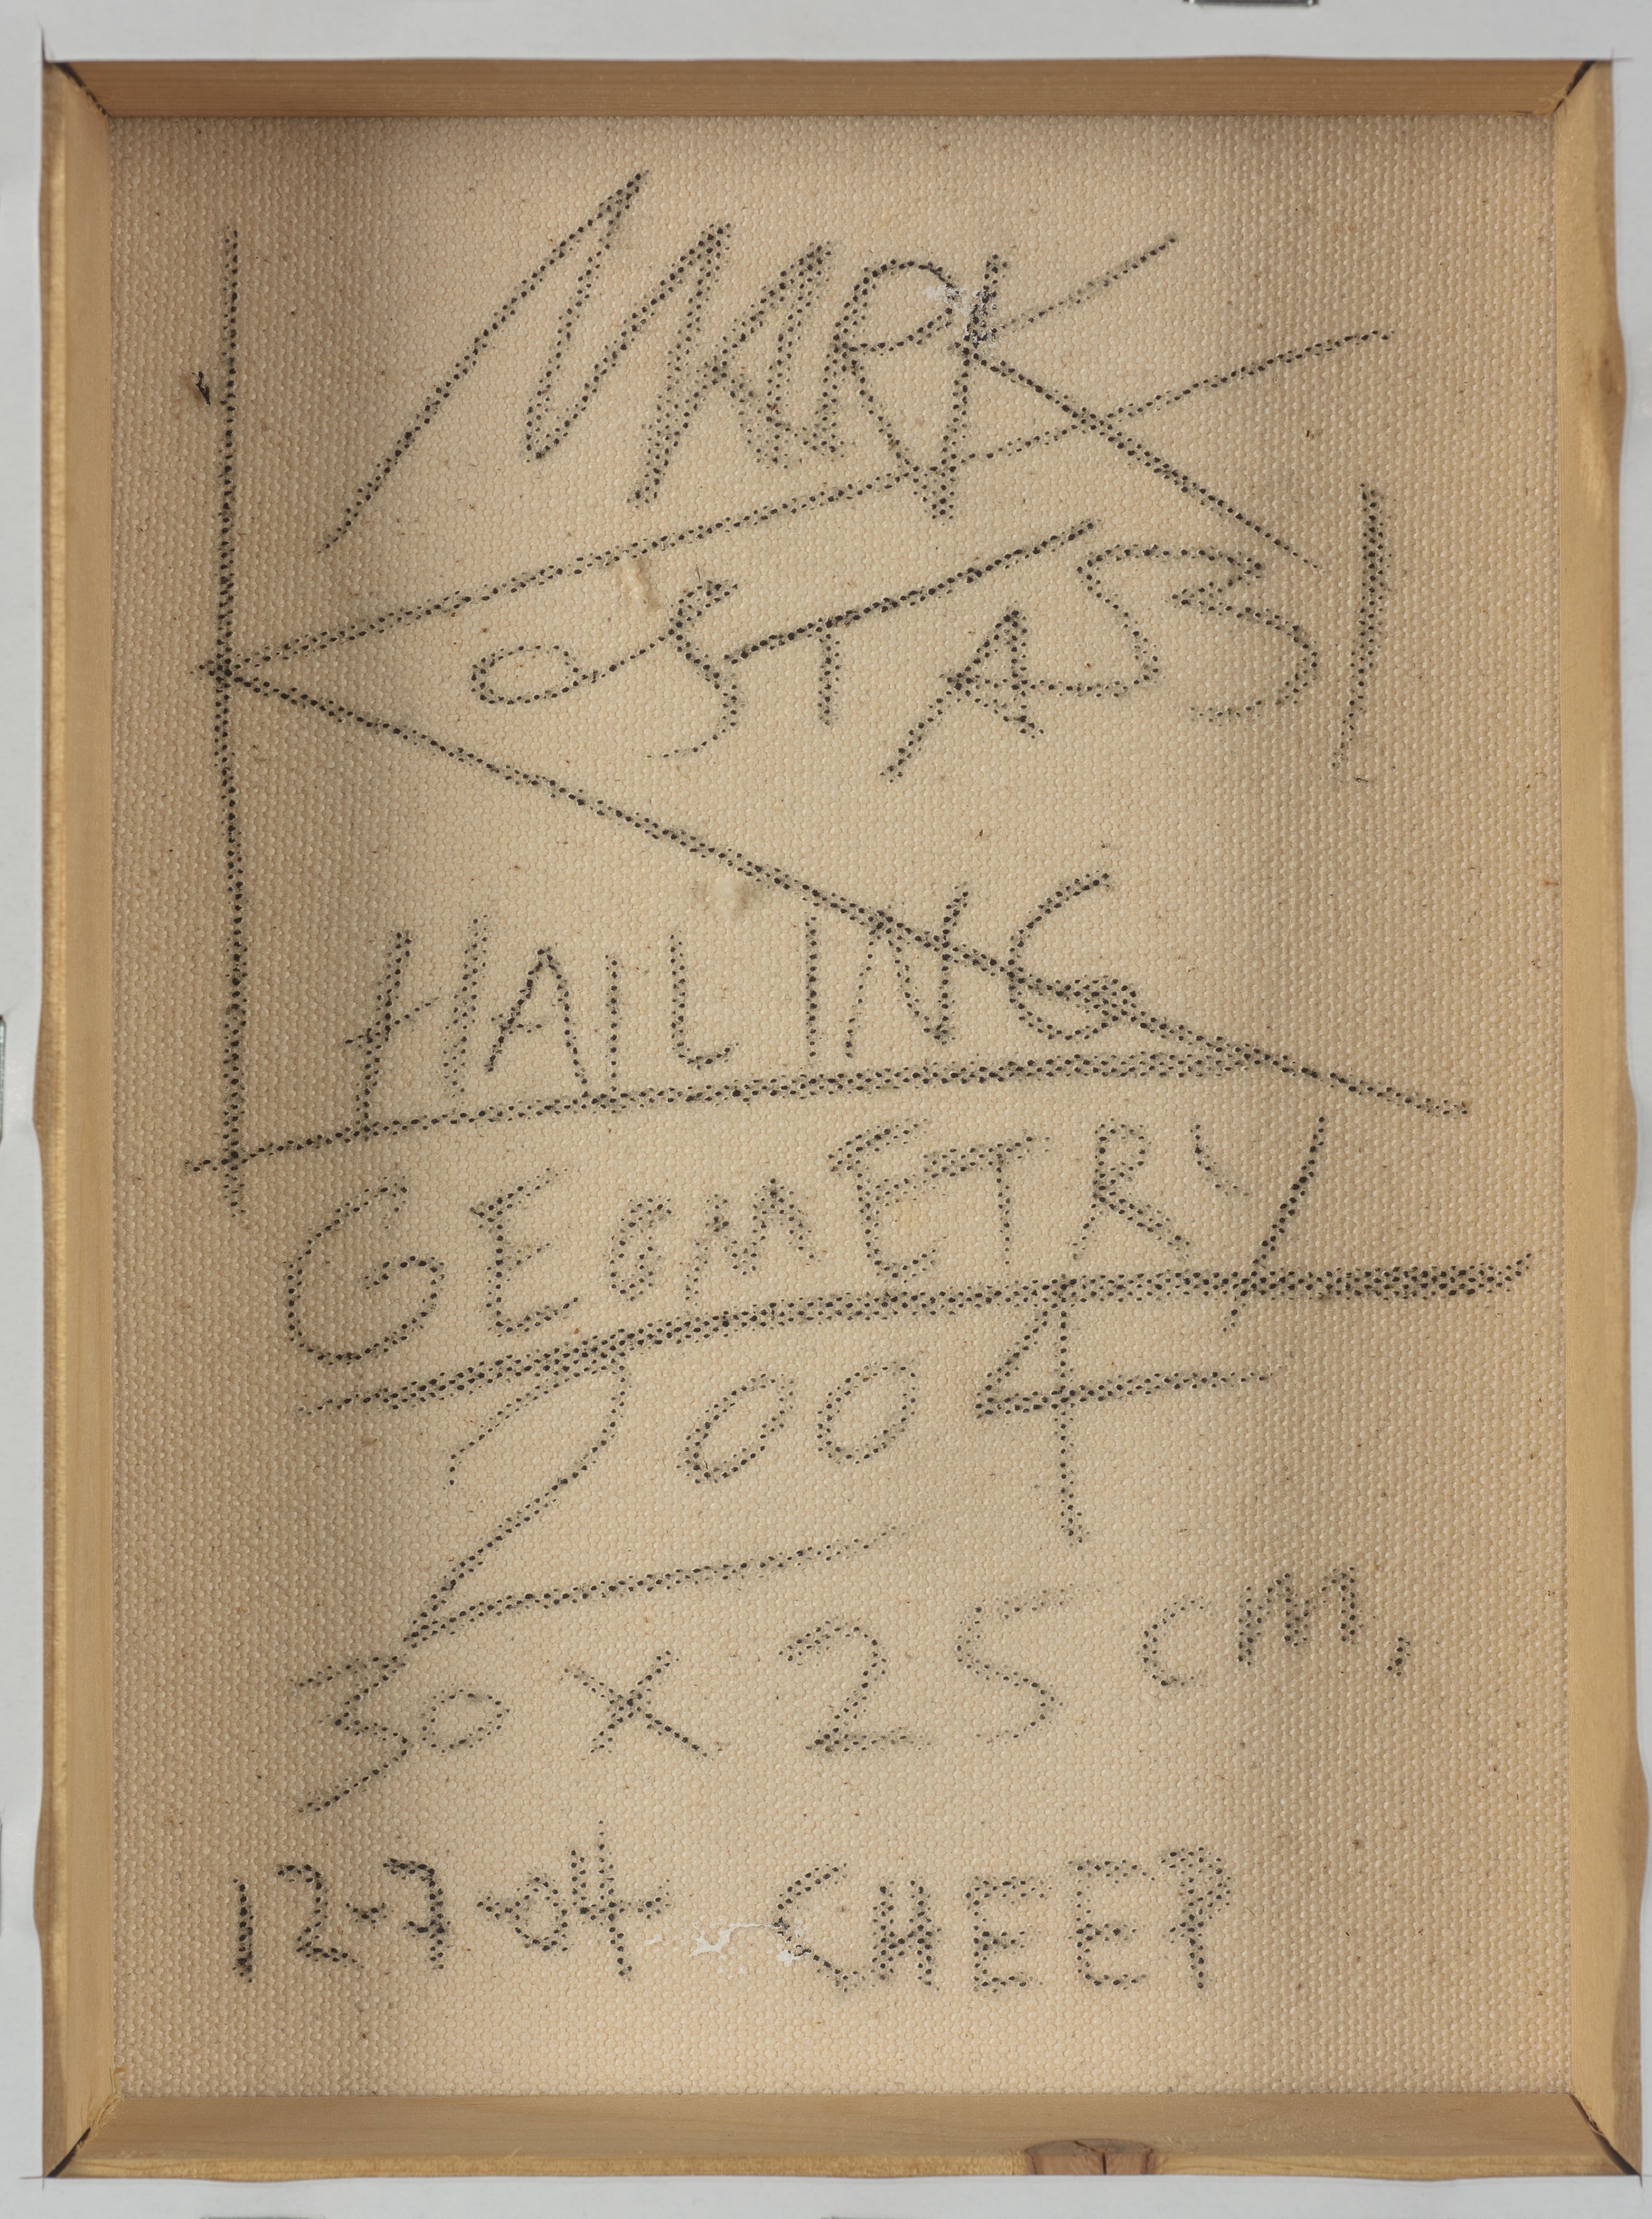 MARK
KOSTABI
HAILING
GEOMETRY
2004
30 x 25 cm,
12-7-04 CHEEP